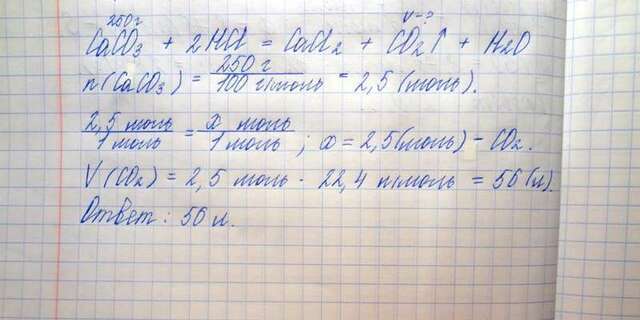 250г V-?
CaCO₃ + 2HCl = CaCl₂ + CO₂↑ + H₂O
n(CaCO₃) = 250 г / 100 г/моль = 2,5 (моль).
2,5 моль / 1 моль = x моль / 1 моль ; x = 2,5(моль) - CO₂.
V(CO₂) = 2,5 моль · 22,4 л/моль = 56(л).
Ответ: 56 л.